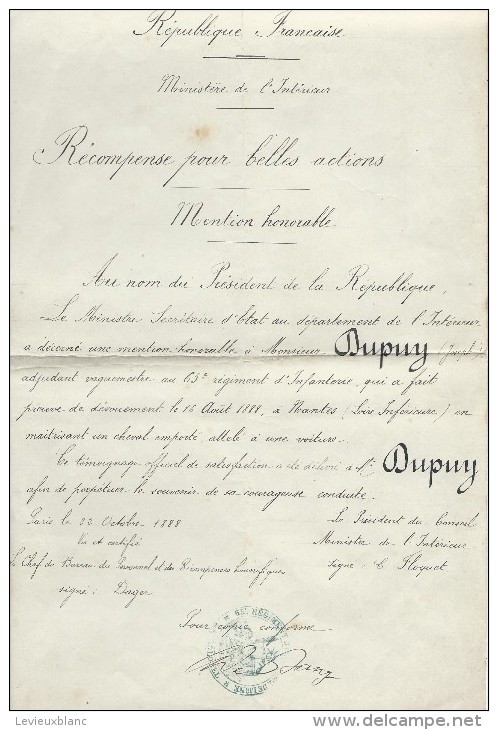 République Française
Ministère de l'Intérieur
Récompense pour belles actions
Mention honorable
Au nom du Président de la République,
Le Ministre Secrétaire d'État au département de l'Intérieur
a décerné une mention honorable à Monsieur Dupuy
adjudant vaguemestre au 65e régiment d'Infanterie, qui a fait
preuve de dévouement le 16 Août 1888, à Nantes (Loire Inférieure) en
maitrisant un cheval emporté attelé à une voiture.
Ce témoignage officiel de satisfaction a été délivré à Mr Dupuy
afin de perpétuer le souvenir de sa courageuse conduite.
Paris le 22 Octobre 1888
Le Président du Conseil
Ministre de l'Intérieur
signé: C Floquet
Le Chef du Bureau du Personnel et des Récompenses honorifiques
signé:
Pour copie conforme
65e REGIMENT
Levieuxblanc
delcampe.net